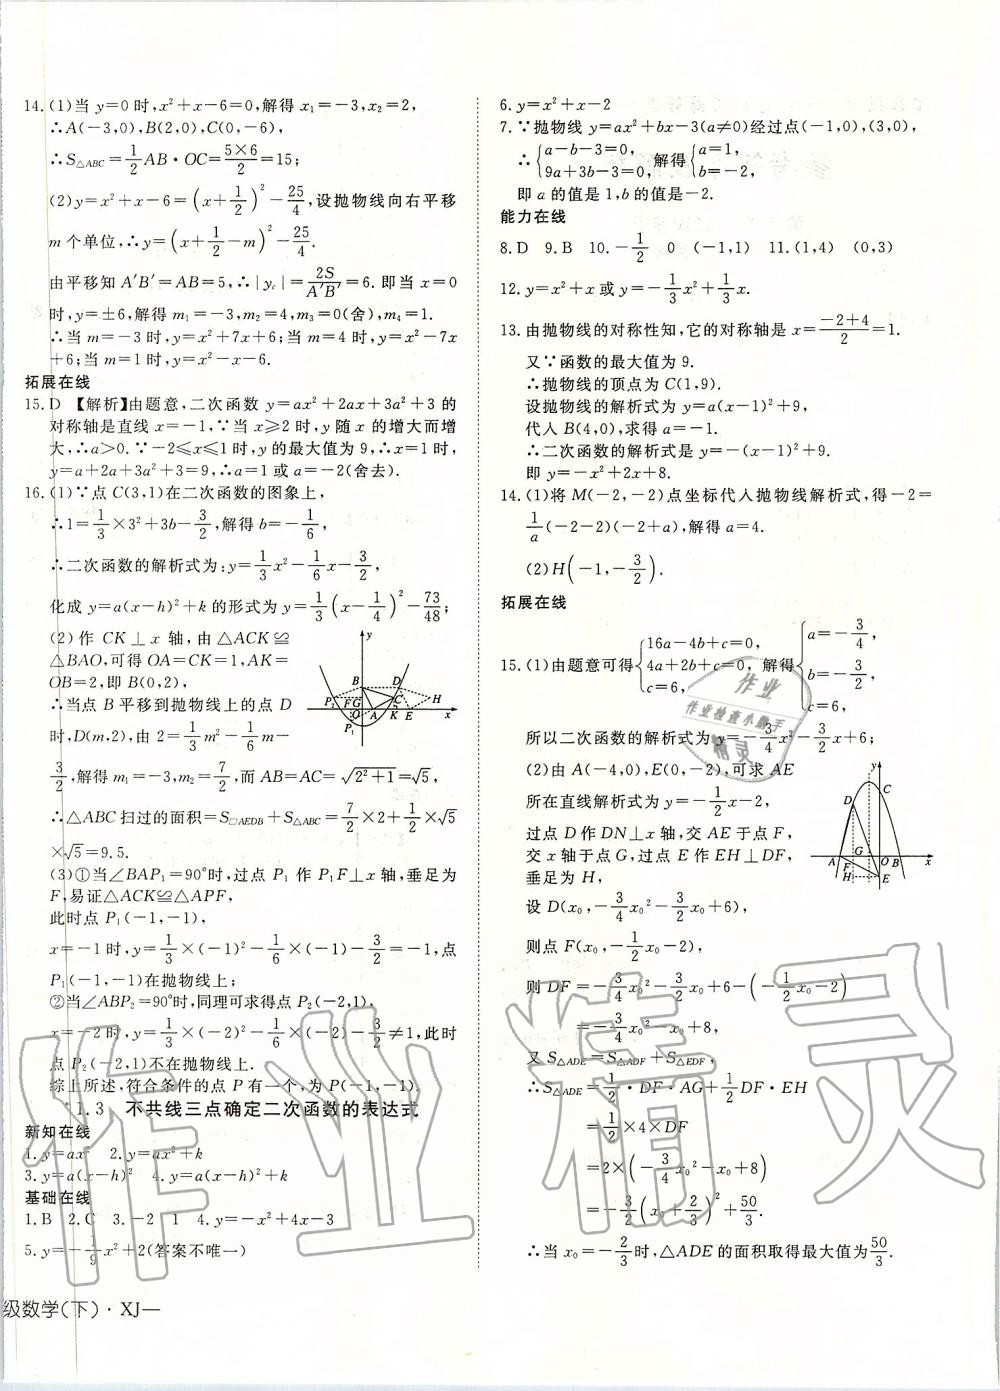 14.(1)当 y=0 时,x²+x-6=0,解得 x₁=-3,x₂=2,
∴A(-3,0),B(2,0),C(0,-6),
∴S△ABC=1/2 AB·OC=5×6/2=15;
(2)y=x²+x-6=(x+1/2)²-25/4,设抛物线向右平移
m 个单位,∴y=(x+1/2-m)²-25/4.
由平移知 A′B′=AB=5,∴|y_c|=2S/A′B′=6. 即当 x=0
时,y=±6,解得 m₁=-3,m₂=4,m₃=0(舍),m₄=1.
∴当 m=-3 时,y=x²+7x+6;当 m=4 时,y=x²-7x
+6;当 m=1 时,y=x²-x-6.
拓展在线
15.D 【解析】由题意,二次函数 y=ax²+2ax+3a²+3 的
对称轴是直线 x=-1,∵当 x≥2 时,y 随 x 的增大而增
大,∴a>0.∵-2≤x≤1 时,y 的最大值为 9,∴x=1 时,
y=a+2a+3a²+3=9,∴a=1 或 a=-2(舍去).
16.(1)∵点 C(3,1)在二次函数的图象上,
∴1=1/3×3²+3b-3/2,解得 b=-1/6,
∴二次函数的解析式为:y=1/3x²-1/6x-3/2,
化成 y=a(x-h)²+k 的形式为 y=1/3(x-1/4)²-73/48;
(2)作 CK⊥x 轴,由△ACK≌
△BAO,可得 OA=CK=1,AK=
OB=2,即 B(0,2),
∴当点 B 平移到抛物线上的点 D
时,D(m,2),由 2=1/3m²-1/6m-
3/2,解得 m₁=-3,m₂=7/2,而 AB=AC=√(2²+1)=√5,
∴△ABC 扫过的面积=S▱AEDB+S△ABC=7/2×2+1/2×√5
×√5=9.5.
(3)①当∠BAP₁=90°时,过点 P₁ 作 P₁F⊥x 轴,垂足为
F,易证△ACK≌△APF,
此时点 P₁(-1,-1),
x=-1 时,y=1/3×(-1)²-1/6×(-1)-3/2=-1,点
P₁(-1,-1)在抛物线上;
②当∠ABP₂=90°时,同理可求得点 P₂(-2,1),
x=-2 时,y=1/3×(-2)²-1/6×(-2)-3/2≠1,此时
点 P₂(-2,1)不在抛物线上.
综上所述,符合条件的点 P 有一个,为(-1,-1).
1.3 不共线三点确定二次函数的表达式
新知在线
1.y=ax² 2.y=ax²+k
3.y=a(x-h)² 4.y=a(x-h)²+k
基础在线
1.B 2.C 3.-2 1 4.y=-x²+4x-3
5.y=-1/9x²+2(答案不唯一)
级数学(下)·XJ—
6.y=x²+x-2
7.∵抛物线 y=ax²+bx-3(a≠0)经过点(-1,0),(3,0),
∴{a-b-3=0, 9a+3b-3=0, 解得{a=1, b=-2,
即 a 的值是 1,b 的值是-2.
能力在线
8.D 9.B 10.-1/2 0 (-1,1) 11.(1,4) (0,3)
12.y=x²+x 或 y=-1/3x²+1/3x.
13.由抛物线的对称性知,它的对称轴是 x=-2+4/2=1.
又∵函数的最大值为 9.
∴抛物线的顶点为 C(1,9).
设抛物线的解析式为 y=a(x-1)²+9,
代人 B(4,0),求得 a=-1.
∴二次函数的解析式是 y=-(x-1)²+9.
即 y=-x²+2x+8.
14.(1)将 M(-2,-2)点坐标代人抛物线解析式,得-2=
1/a(-2-2)(-2+a),解得 a=4.
(2)H(-1,-3/2).
拓展在线
15.(1)由题意可得{16a-4b+c=0, 4a+2b+c=0, c=6, 解得{a=-3/4, b=-3/2, c=6,
所以二次函数的解析式为 y=-3/4x²-3/2x+6;
(2)由 A(-4,0),E(0,-2),可求 AE
所在直线解析式为 y=-1/2x-2,
过点 D 作 DN⊥x 轴,交 AE 于点 F,
交 x 轴于点 G,过点 E 作 EH⊥DF,
垂足为 H,
设 D(x₀,-3/4x₀²-3/2x₀+6),
则点 F(x₀,-1/2x₀-2),
则 DF=-3/4x₀²-3/2x₀+6-(-1/2x₀-2)
=-3/4x₀²-x₀+8,
又 S△ADE=S△ADF+S△EDF,
∴S△ADE=1/2·DF·AG+1/2DF·EH
=1/2×4×DF
=2×(-3/4x₀²-x₀+8)
=-3/2(x₀+2/3)²+50/3.
∴当 x₀=-2/3时,△ADE 的面积取得最大值为50/3.
作业
作业检查小帮手
精灵
作业精灵